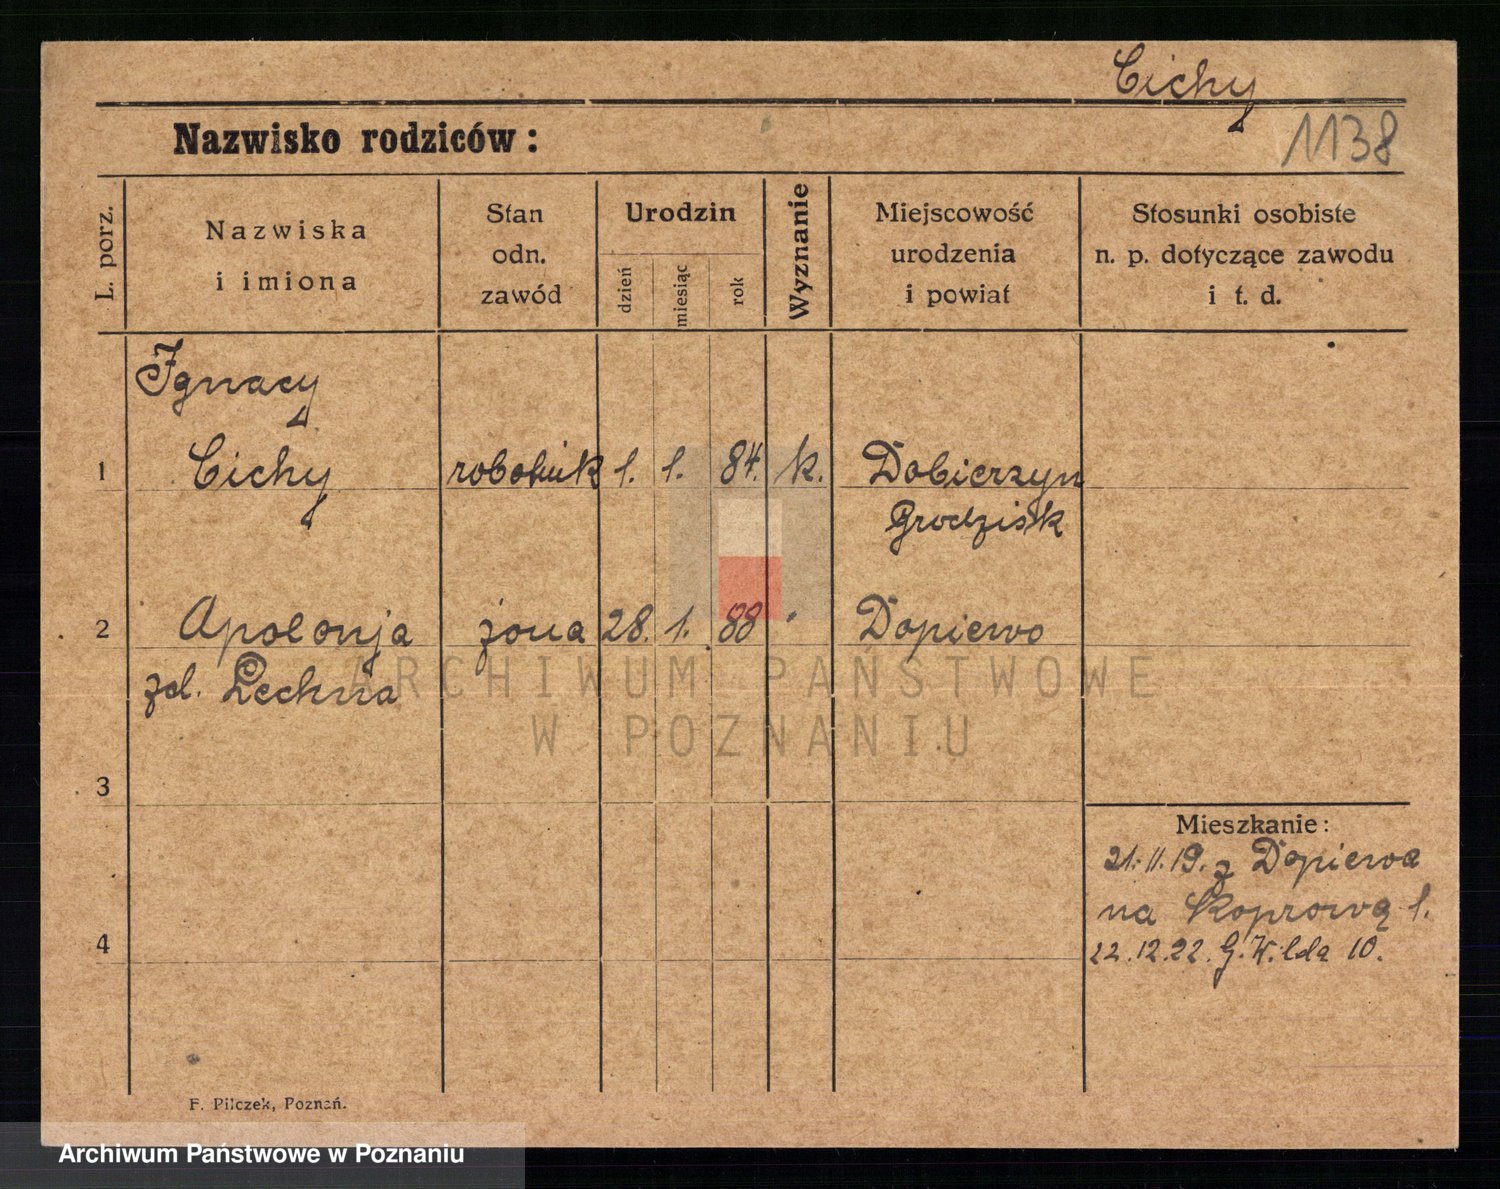 Cichy
Nazwisko rodziców:
1138
L. porz.
Nazwiska
i imiona
Stan
odn.
zawód
Urodzin
dzień
miesiąc
rok
Wyznanie
Miejscowość
urodzenia
i powiat
Stosunki osobiste
n. p. dotyczące zawodu
i t. d.
Ignacy
1 Cichy robotnik 1. 1. 84. k. Dobierzyn
Grodzisk
2 Apolonja żona 28. 1. 88 " Dopiewo
zd. Lechna
ARCHIWUM PAŃSTWOWE
W POZNANIU
3
Mieszkanie:
21.11.19. z Dopiewa
na Koprową 1.
4
22.12.22. G. Wilda 10.
F. Pilczek, Poznań.
Archiwum Państwowe w Poznaniu